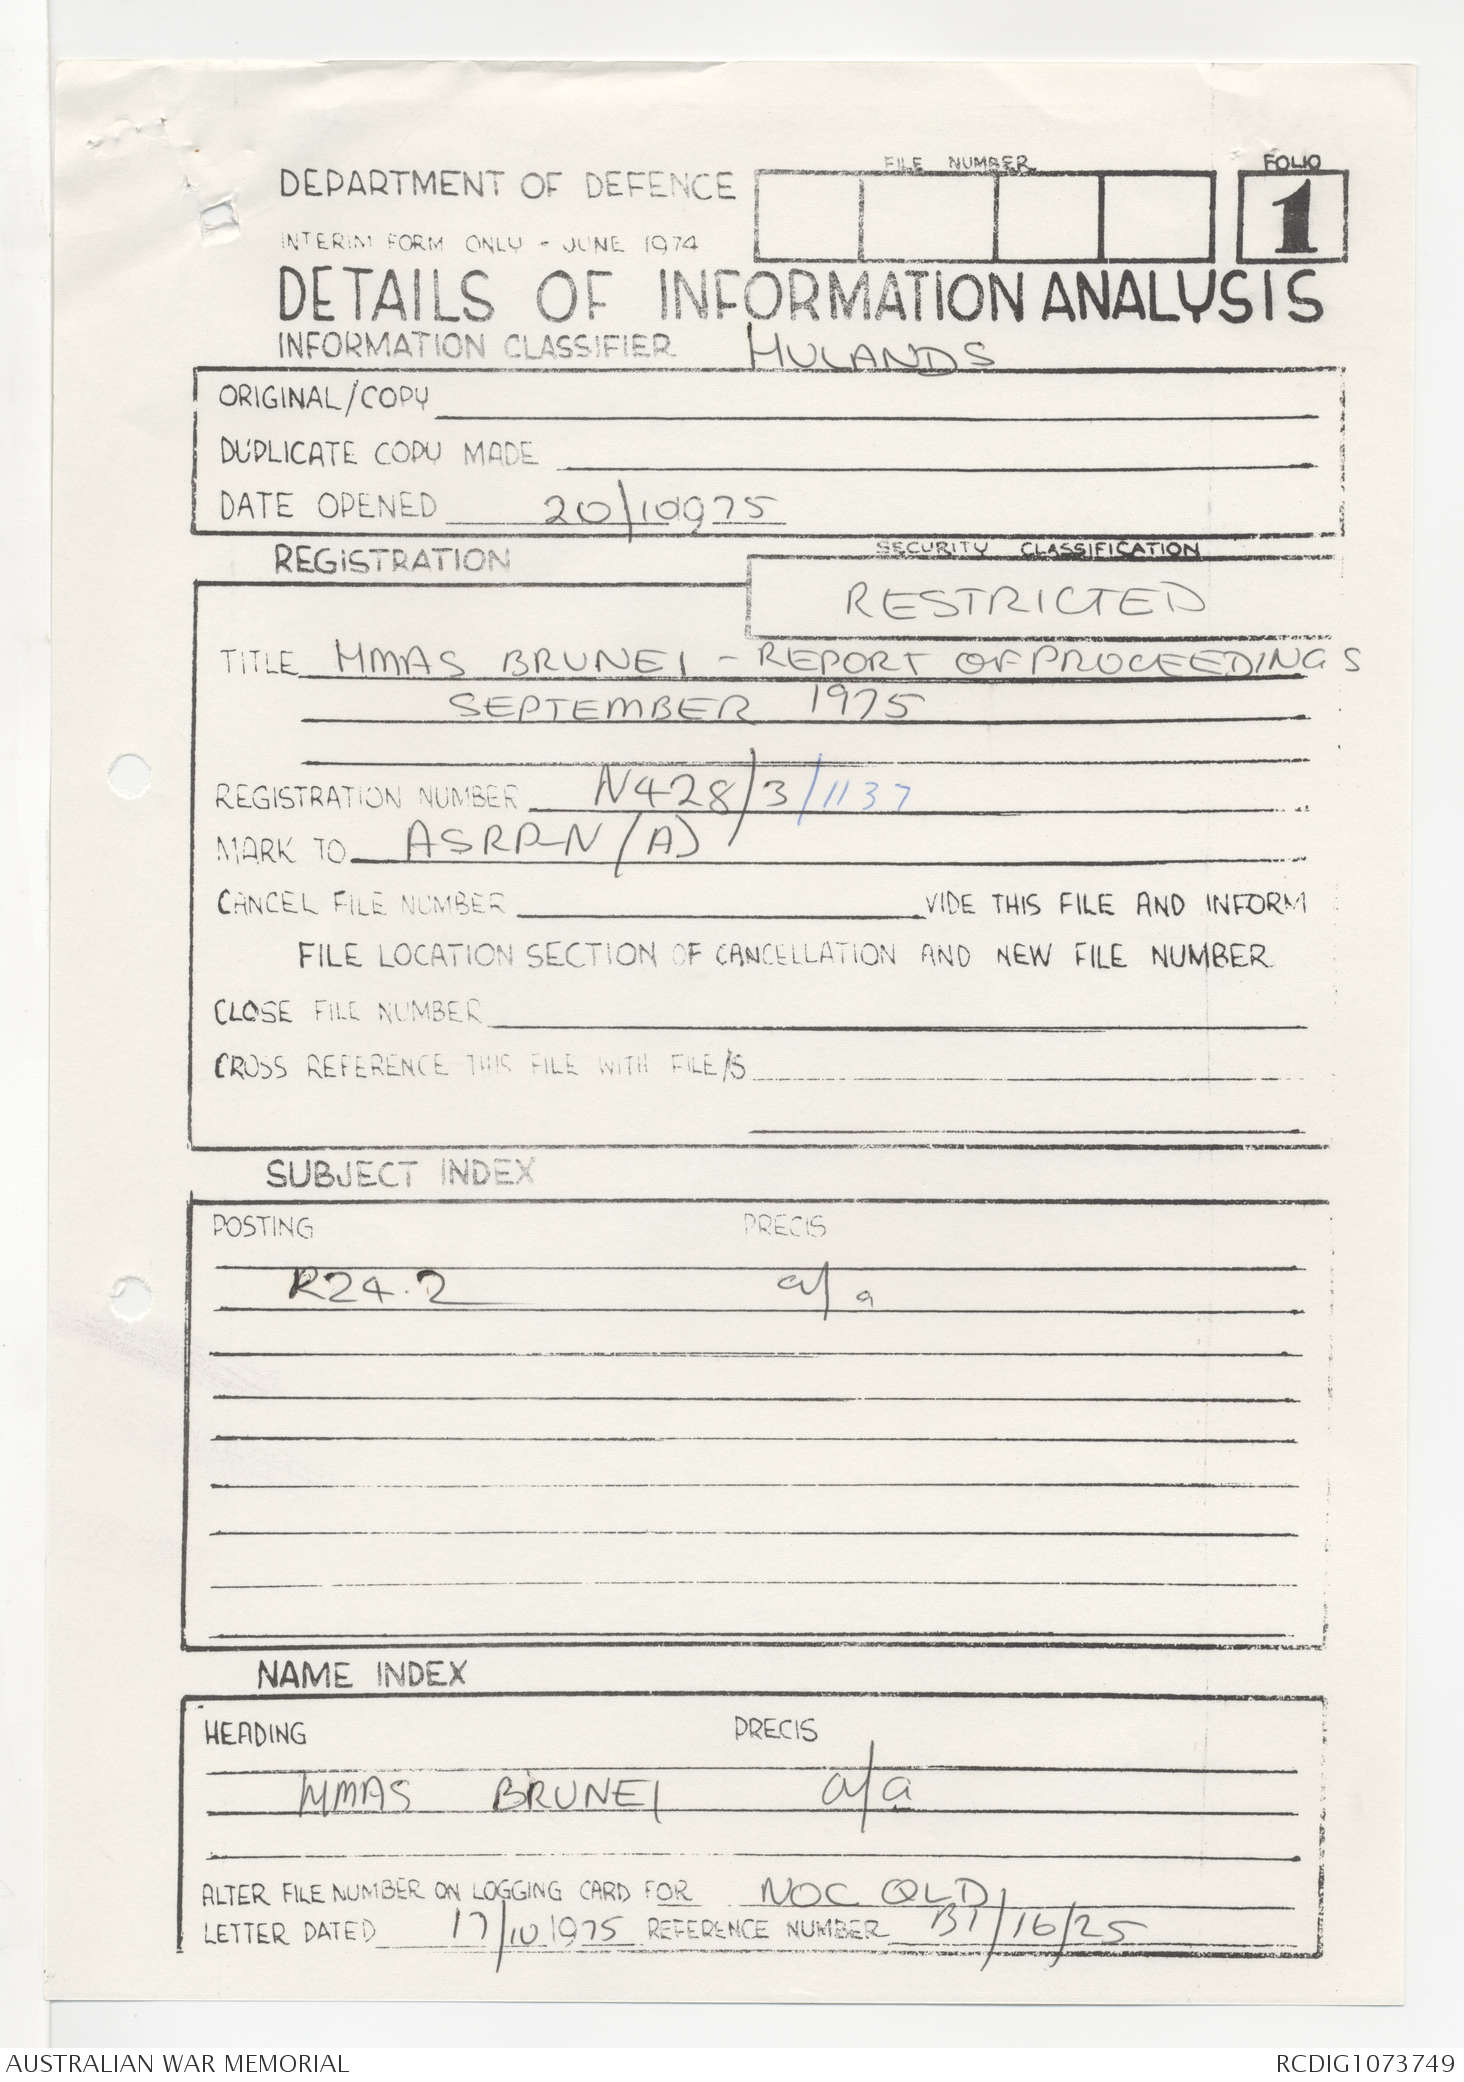 FILE NUMBER FOLIO
DEPARTMENT OF DEFENCE 1
INTERIM FORM ONLY - JUNE 1974
DETAILS OF INFORMATION ANALYSIS
INFORMATION CLASSIFIER HULANDS
ORIGINAL/COPY
DUPLICATE COPY MADE
DATE OPENED 20/10975
REGISTRATION
SECURITY CLASSIFICATION
RESTRICTED
TITLE HMAS BRUNEI - REPORT OF PROCEEDINGS
SEPTEMBER 1975
REGISTRATION NUMBER N428/3/1137
MARK TO ASRP-N (A)
CANCEL FILE NUMBER VIDE THIS FILE AND INFORM
FILE LOCATION SECTION OF CANCELLATION AND NEW FILE NUMBER
CLOSE FILE NUMBER
CROSS REFERENCE THIS FILE WITH FILE/S
SUBJECT INDEX
POSTING PRECIS
R24.2 a/a
NAME INDEX
HEADING PRECIS
HMAS BRUNEI a/a
ALTER FILE NUMBER ON LOGGING CARD FOR NOC QLD
LETTER DATED 17/10/1975 REFERENCE NUMBER B1/16/25
AUSTRALIAN WAR MEMORIAL RCDIG1073749